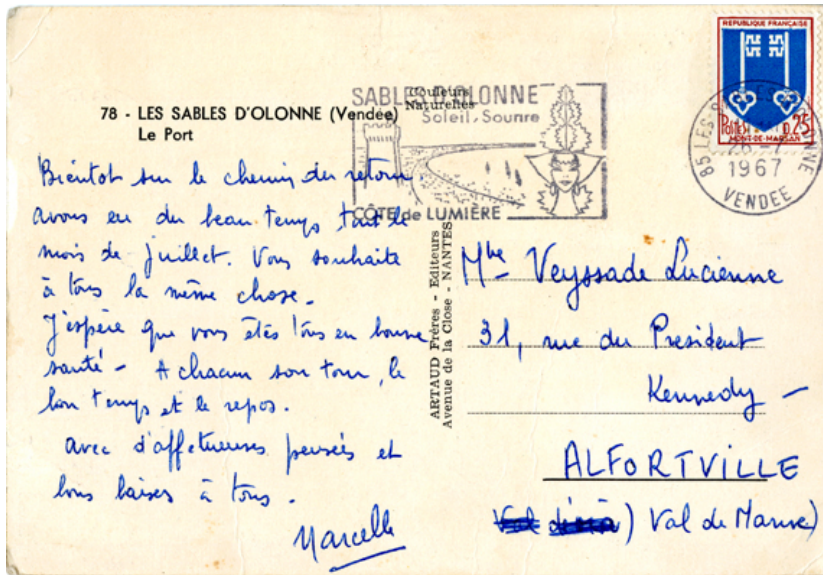 78 - LES SABLES D'OLONNE (Vendée)
Le Port
Couleurs
Naturelles
SABLES D'OLONNE
Soleil, Sourire
CÔTE de LUMIÈRE
REPUBLIQUE FRANÇAISE
POSTES 0,25
MONT-DE-MARSAN
85 LES SABLES D'OLONNE
1967
VENDEE
Bientot sur le chemin du retour
avons eu du beau temps tout le
mois de juillet. Vous souhaite
à tous la même chose.
J'espère que vous êtes tous en bonne
santé - A chacun son tour, le
bon temps et le repos.
avec d'affetueuses pensées et
bons baises à tous.
Marcelle
ARTAUD Frères - Editeurs
Avenue de la Close - NANTES
Veyssade Lucienne
31, rue du President
Kennedy -
ALFORTVILLE
Val de Marne)